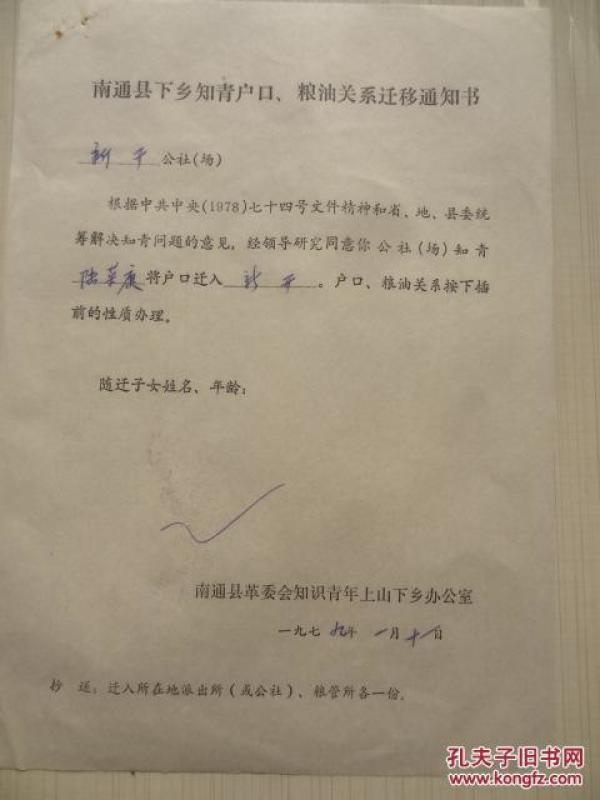 南通县下乡知青户口、粮油关系迁移通知书
新平公社(场)
根据中共中央(1978)七十四号文件精神和省、地、县委统
筹解决知青问题的意见，经领导研究同意你公社(场)知青
陆英康将户口迁入新平。户口、粮油关系按下插
前的性质办理。
随迁子女姓名、年龄：
南通县革委会知识青年上山下乡办公室
一九七九年一月十一日
抄送：迁入所在地派出所(或公社)、粮管所各一份．
孔夫子旧书网
www.kongfz.com